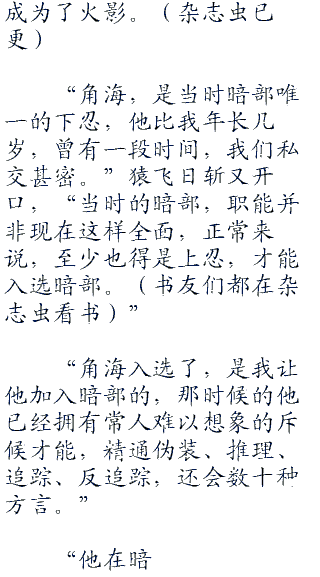 成为了火影。（杂志虫已
更）
“角海，是当时暗部唯
一的下忍，他比我年长几
岁，曾有一段时间，我们私
交甚密。”猿飞日斩又开
口，“当时的暗部，职能并
非现在这样全面，正常来
说，至少也得是上忍，才能
入选暗部。（书友们都在杂
志虫看书）”
“角海入选了，是我让
他加入暗部的，那时候的他
已经拥有常人难以想象的斥
候才能，精通伪装、推理、
追踪、反追踪，还会数十种
方言。”
“他在暗